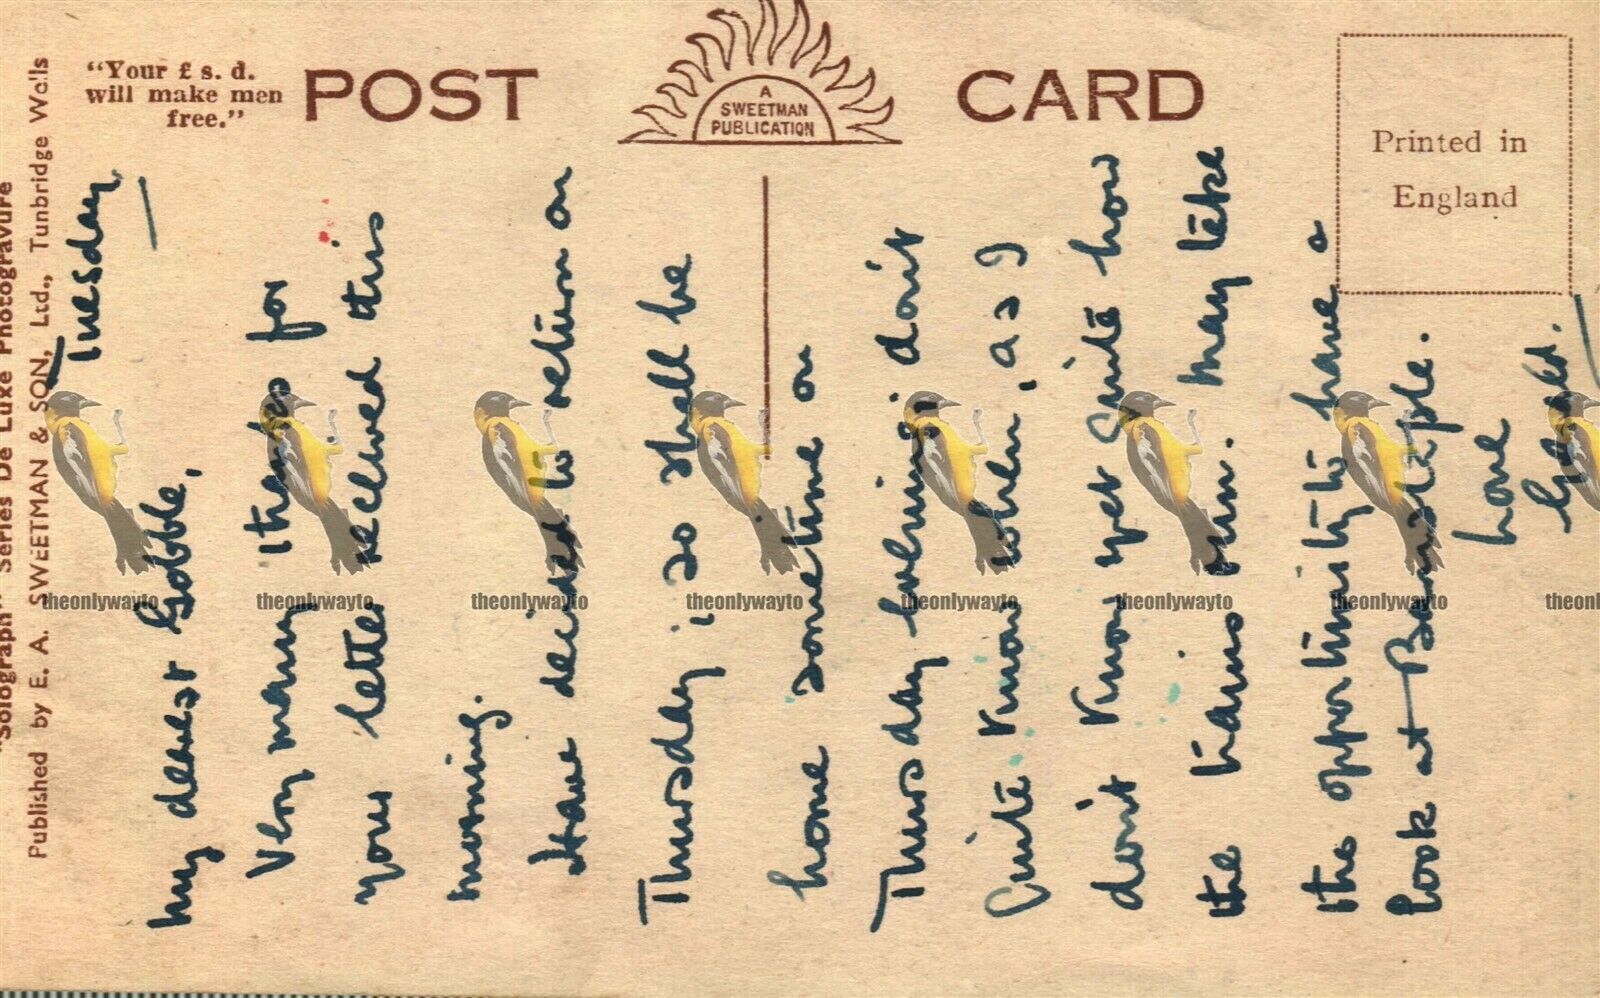 "Your £ s. d.
will make men
free."
POST CARD
A
SWEETMAN
PUBLICATION
Printed in
England
"Solograph" Series De Luxe Photogravure
Published by E. A. SWEETMAN & SON, Ltd., Tunbridge Wells
Tuesday
My dearest Gobble,
Very many thanks for
your letter received this
morning.
Have decided to return on
Thursday, so shall be
home sometime on
Thursday evening, don't
quite know when, as I
don't know yet quite how
the trains run. May take
the opportunity to have a
look at Barnstaple.
Love
Gerald.
theonlywayto
theonlywayto
theonlywayto
theonlywayto
theonlywayto
theonlywayto
theonlywayto
theonl